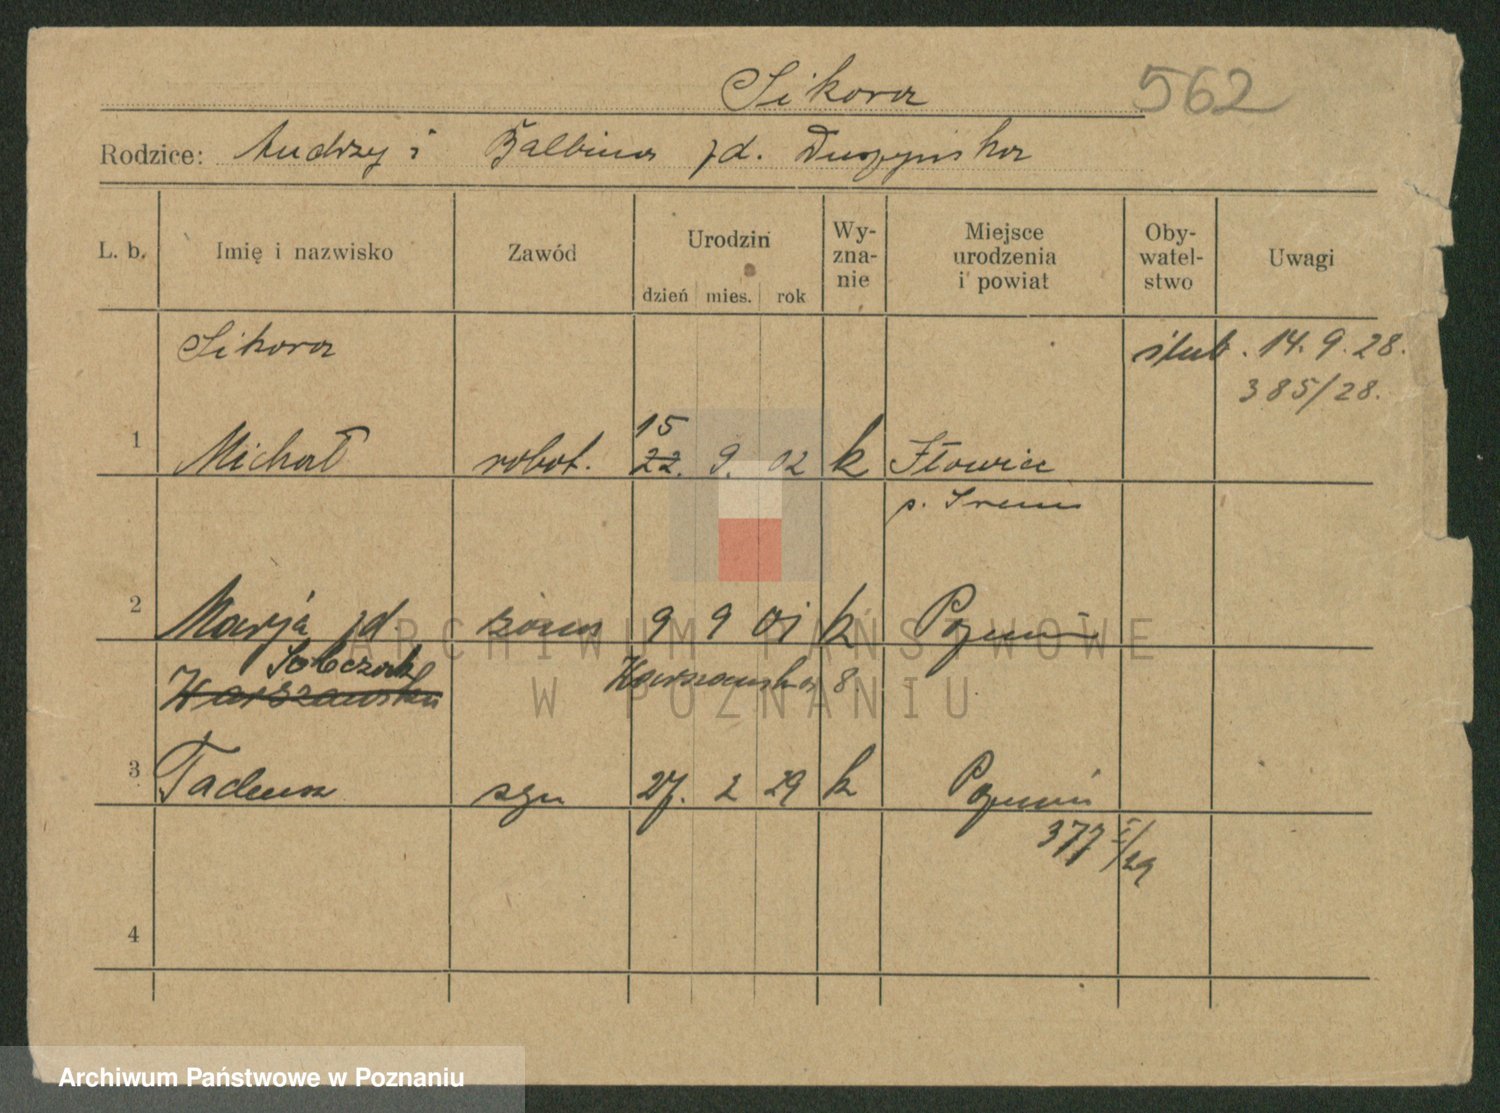 Sikora 562
Rodzice: Andrzej i Balbina zd. Duszyńska
L. b. Imię i nazwisko Zawód Urodzin dzień mies. rok Wy-zna-nie Miejsce urodzenia i powiat Oby-watel-stwo Uwagi
Sikora ślub. 14.9.28.
385/28.
15
1 Michał robot. 22. 9. 02 k Iłowiec
p. Śrem
2 Marja zd żona 9 9 01 k Poznań
Sobczak
Warszawska Warszawska 8
3 Tadeusz syn 27. 2 29 k Poznań
377 I/29
4
ARCHIWUM PAŃSTWOWE
W POZNANIU
Archiwum Państwowe w Poznaniu